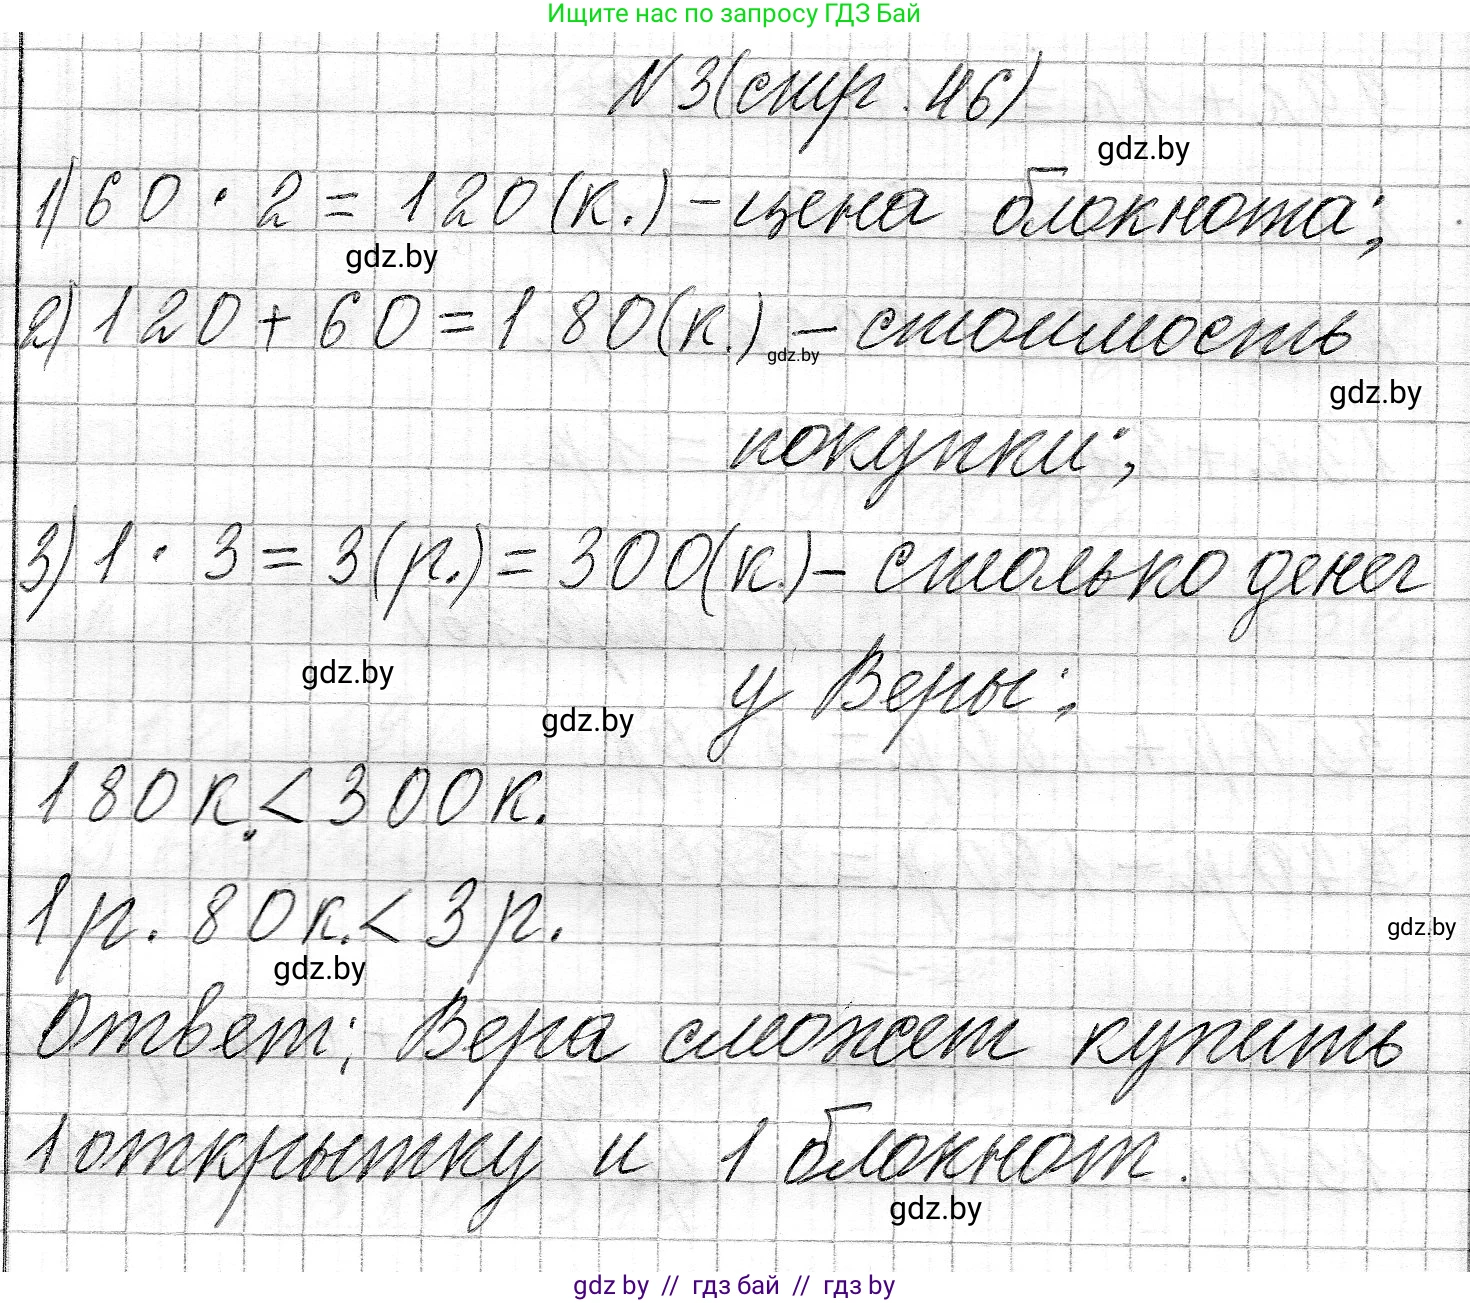 Ищите нас по запросу ГДЗ Бай
N 3 (стр. 46)
gdz.by
1) 60 · 2 = 120 (к.) – цена блокнота;
gdz.by
2) 120 + 60 = 180 (к.) – стоимость
gdz.by
gdz.by
покупки;
3) 1 · 3 = 3 (р.) = 300 (к.) – столько денег
gdz.by
у Веры;
gdz.by
180 к. < 300 к.
1 р. 80 к. < 3 р.
gdz.by
gdz.by
Ответ: Вера сможет купить
1 открытку и 1 блокнот.
gdz.by
gdz by // гдз бай // гдз by